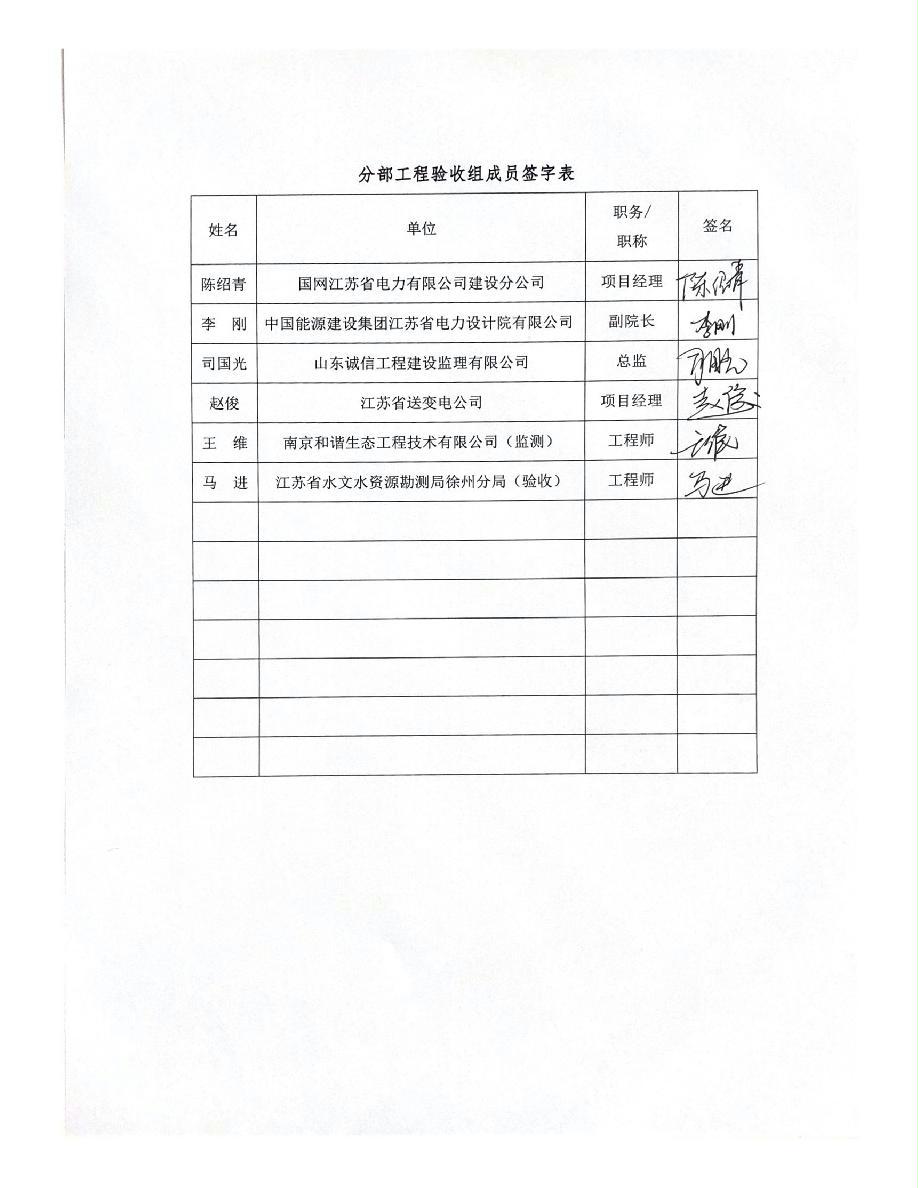 分部工程验收组成员签字表
姓名 单位 职务/职称 签名
陈绍青 国网江苏省电力有限公司建设分公司 项目经理 陈绍青
李 刚 中国能源建设集团江苏省电力设计院有限公司 副院长 李刚
司国光 山东诚信工程建设监理有限公司 总监
赵俊 江苏省送变电公司 项目经理 赵俊
王 维 南京和谐生态工程技术有限公司（监测） 工程师
马 进 江苏省水文水资源勘测局徐州分局（验收） 工程师 马进